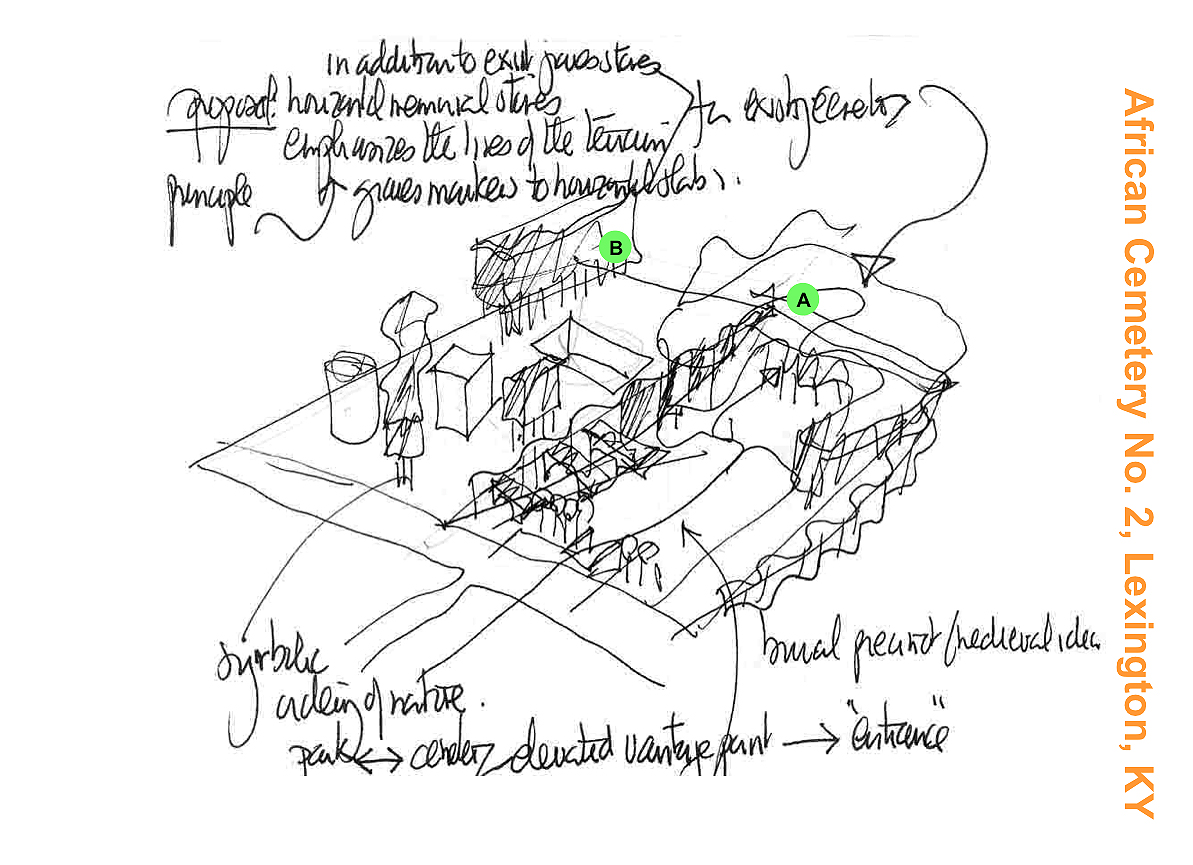 in addition to exist graves stones
proposed: horizontal memorial stones
emphasizes the lines of the terrain
principle graves markers to horizontal slabs.
existing
B
A
symbolic
ordering of nature.
burial precinct medieval idea
park ↔ cemetery elevated vantage point → "entrance"
African Cemetery No. 2, Lexington, KY